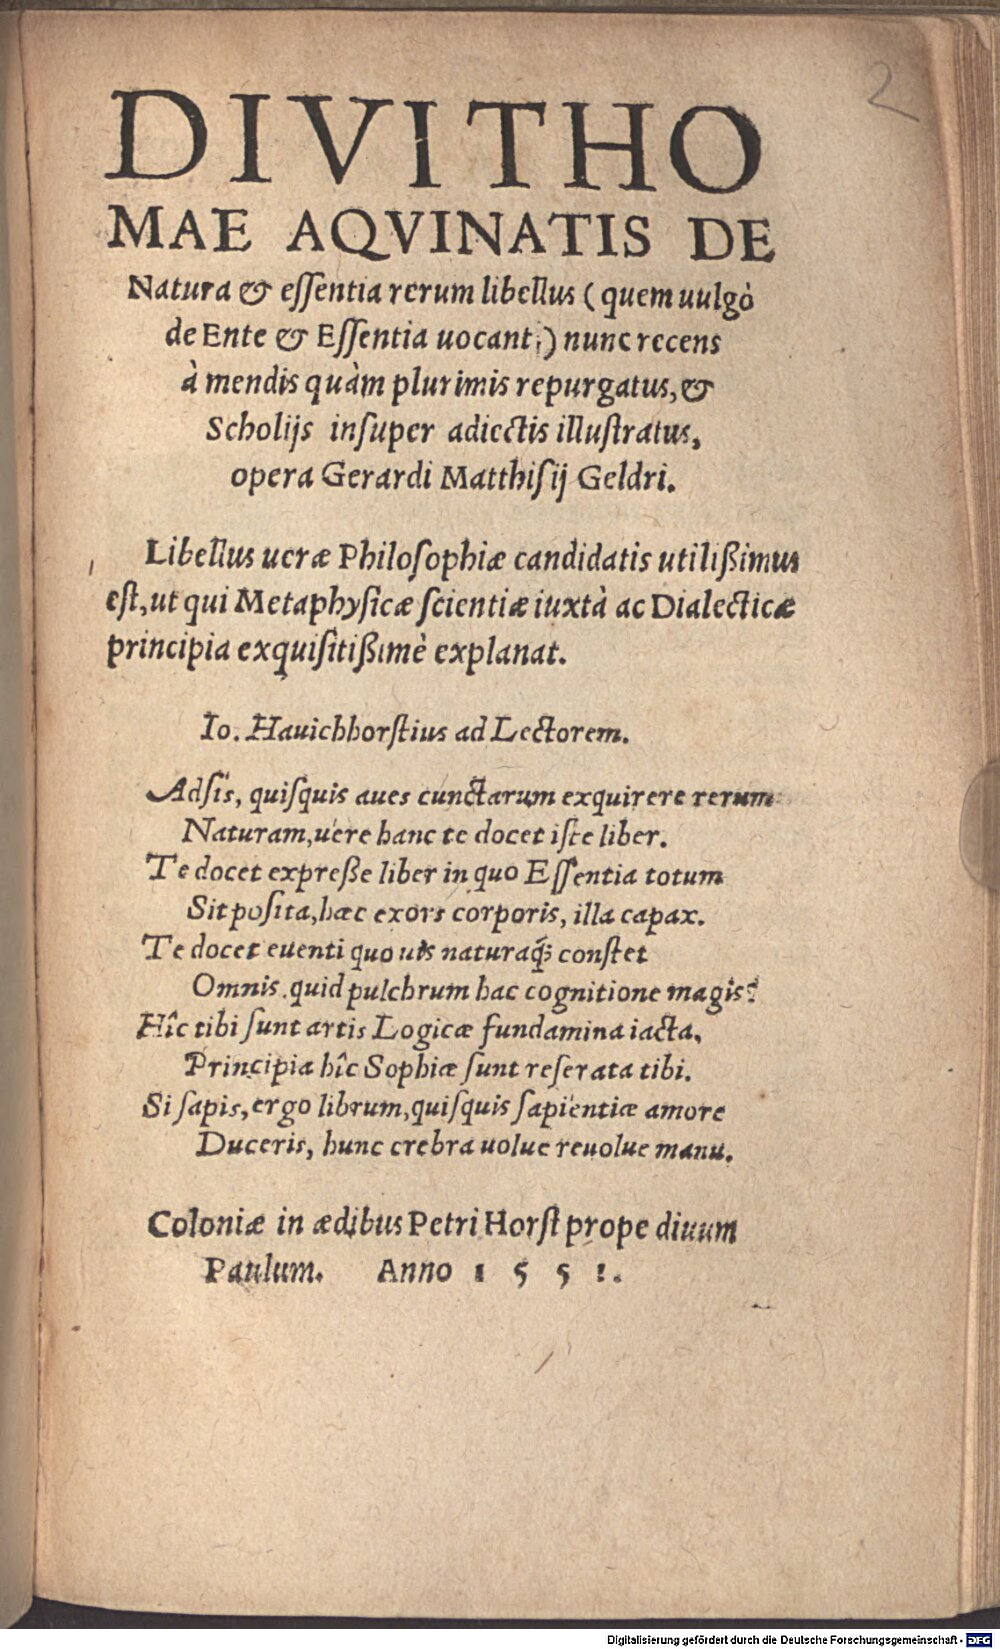 2
DIVI THO
MAE AQVINATIS DE
Natura & essentia rerum libellus (quem uulgò
de Ente & Essentia uocant,) nunc recens
à mendis quàm plurimis repurgatus, &
Scholijs insuper adiectis illustratus,
opera Gerardi Matthisij Geldri.
Libellus ueræ Philosophiæ candidatis utilißimus
est, ut qui Metaphysicæ scientiæ iuxtà ac Dialecticæ
principia exquisitißimè explanat.
Io. Hauichhorstius ad Lectorem.
Adsis, quisquis aues cunctarum exquirere rerum
Naturam, uere hanc te docet iste liber.
Te docet expreße liber in quo Essentia totum
Sit posita, hæc exors corporis, illa capax.
Te docet euenti quo uis naturaq́; constet
Omnis. quid pulchrum hac cognitione magis?
Hîc tibi sunt artis Logicæ fundamina iacta,
Principia hîc Sophiæ sunt reserata tibi.
Si sapis, ergo librum, quisquis sapientiæ amore
Duceris, hunc crebra uolue reuolue manu.
Coloniæ in ædibus Petri Horst prope diuum
Paulum. Anno 1551.
Digitalisierung gefördert durch die Deutsche Forschungsgemeinschaft - DFG